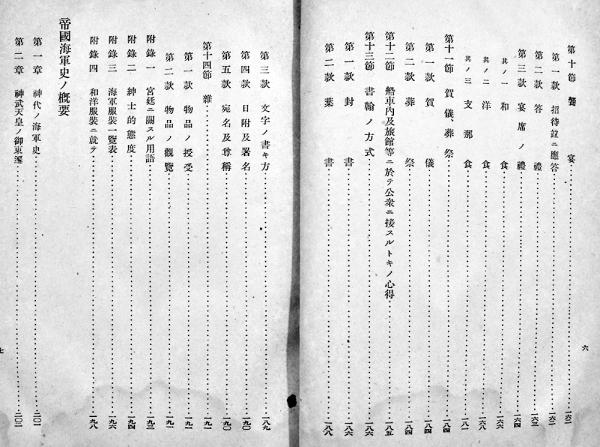 第十節 饗宴 一六二
第一款 招待竝ニ應答 一六二
第二款 答禮 一六三
第三款 宴席ノ禮 一六四
其ノ一 和食 一六四
其ノ二 洋食 一六八
其ノ三 支那食 一八一
第十一節 賀儀、葬祭 一八四
第一款 賀儀 一八四
第二款 葬祭 一八四
第十二節 船車內及旅館等ニ於テ公衆ニ接スルトキノ心得 一八五
第十三節 書翰ノ方式 一八六
第一款 封書 一八六
第二款 葉書 一八八
六
第三款 文字ノ書キ方 一八九
第四款 日附及署名 一九〇
第五款 宛名及尊稱 一九〇
第十四節 雜 一九一
第一款 物品ノ授受 一九一
第二款 物品ノ觀覽 一九二
附錄一 宮廷ニ關スル用語 一九三
附錄二 紳士的態度 一九四
附錄三 海軍服裝一覽表 一九六
附錄四 和洋服裝ニ就テ 一九八
帝國海軍史ノ槪要
第一章 神代ノ海軍史 二〇一
第二章 神武天皇ノ御東遷 二〇二
七